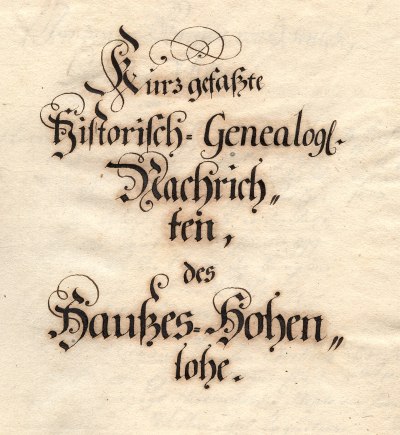 Kurz gefaßte
Historisch= Genealogl.
Nachrich„
ten,
des
Haußes=Hohen„
lohe.